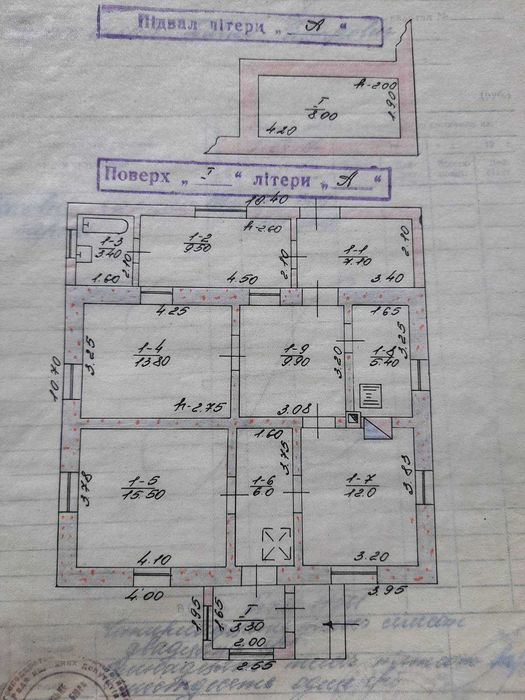 Підвал літери „ А “
h-2.00
I
8.00
1.90
4.20
Поверх „ I “ літери „ А “
10.40
1-3
3.40
1-2
9.50
h-2.60
1-1
7.10
2.10
2.10
2.10
1.60
4.50
3.40
4.25
1.65
10.70
3.25
1-4
13.80
1-9
9.90
3.20
1-8
5.40
3.25
h-2.75
3.08
1.60
3.78
1-5
15.50
1-6
6.0
3.75
1-7
12.0
3.83
4.10
3.20
4.00
3.95
1.95
1.65
I
3.30
2.00
2.55